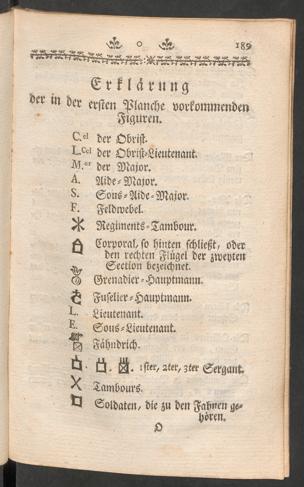 189
Erklärung
der in der ersten Planche vorkommenden
Figuren.
C.el der Obrist.
L.Cel der Obrist-Lieutenant.
M.or der Major.
A. Aide-Major.
S. Sous-Aide-Major.
F. Feldwebel.
Regiments-Tambour.
Corporal, so hinten schließt, oder
den rechten Flügel der zweyten
Section bezeichnet.
Grenadier-Hauptmann.
Fuselier-Hauptmann.
L. Lieutenant.
E. Sous-Lieutenant.
Fähndrich.
1ster, 2ter, 3ter Sergant.
Tambours.
Soldaten, die zu den Fahnen ge-
hören.